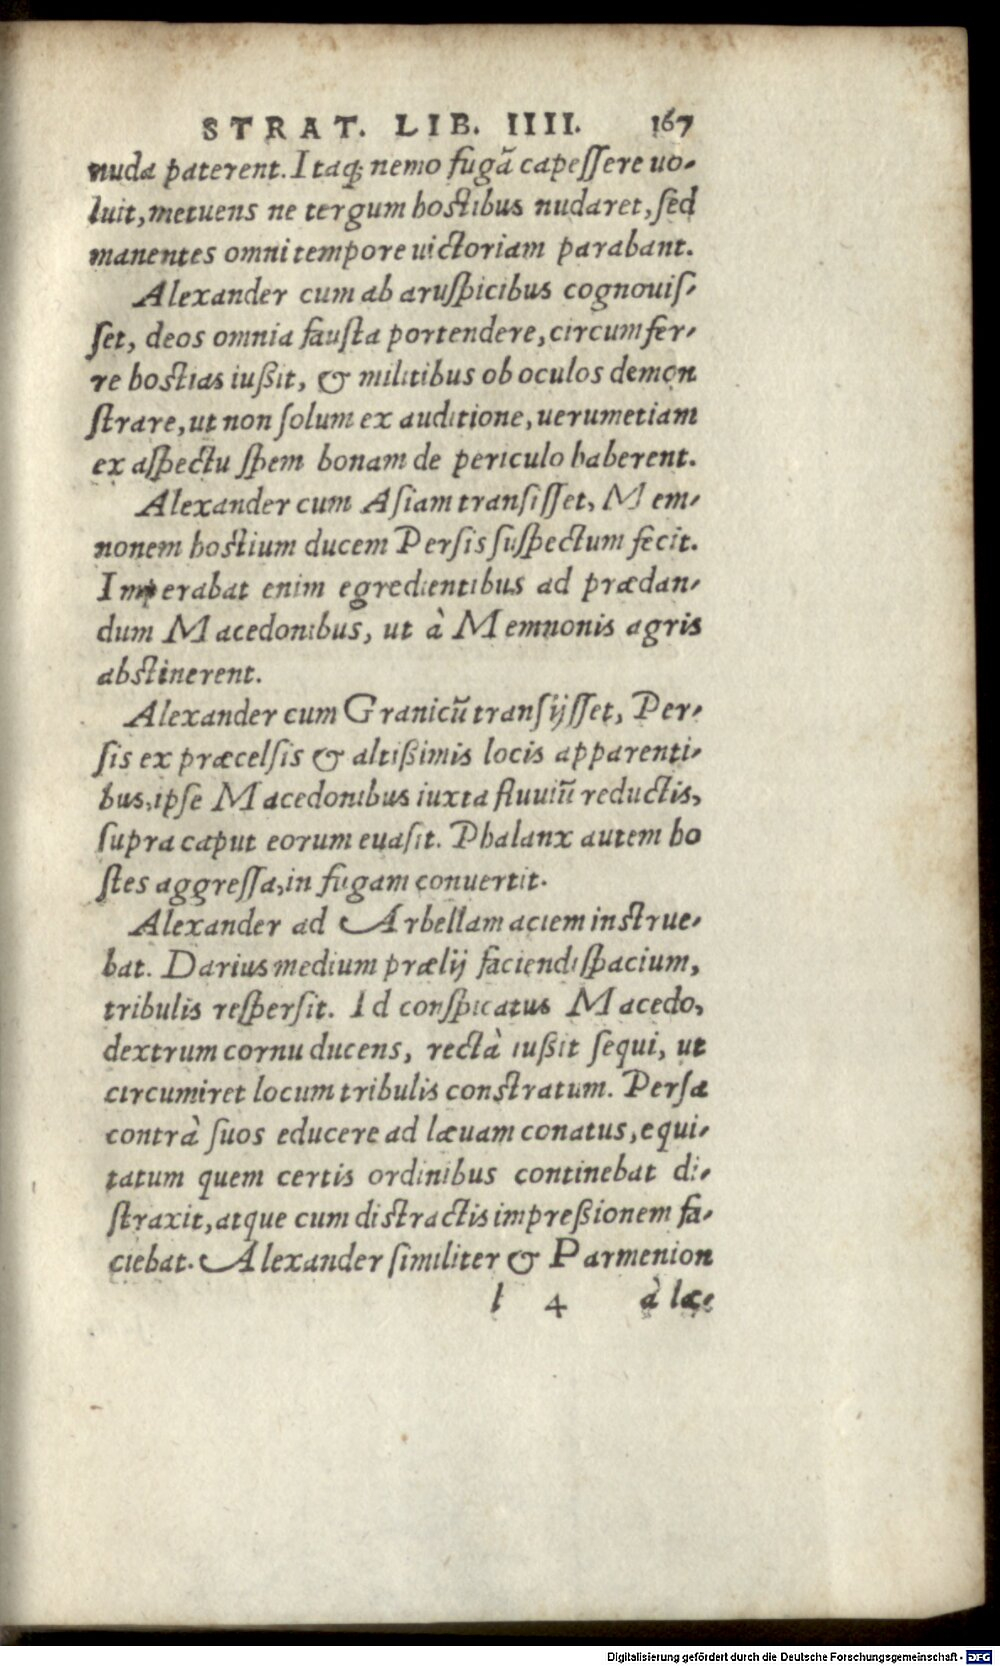 STRAT. LIB. IIII. 167
nuda paterent. Itaq; nemo fugã capeſſere uo-
luit, metuens ne tergum hoſtibus nudaret, ſed
manentes omni tempore uictoriam parabant.
Alexander cum ab aruſpicibus cognouiſ-
ſet, deos omnia fauſta portendere, circumfer-
re hoſtias iußit, & militibus ob oculos demon
ſtrare, ut non ſolum ex auditione, uerumetiam
ex aſpectu ſpem bonam de periculo haberent.
Alexander cum Aſiam tranſiſſet, Mem-
nonem hoſtium ducem Perſis ſuſpectum fecit.
Imperabat enim egredientibus ad prædan-
dum Macedonibus, ut à Memnonis agris
abſtinerent.
Alexander cum Granicũ tranſijſſet, Per-
ſis ex præcelſis & altißimis locis apparenti-
bus, ipſe Macedonibus iuxta fluuiũ reductis,
ſupra caput eorum euaſit. Phalanx autem ho
ſtes aggreſſa, in fugam conuertit.
Alexander ad Arbellam aciem inſtrue-
bat. Darius medium prælij faciendi ſpacium,
tribulis reſperſit. Id conſpicatus Macedo,
dextrum cornu ducens, rectà iußit ſequi, ut
circumiret locum tribulis conſtratum. Perſa
contrà ſuos educere ad læuam conatus, equi-
tatum quem certis ordinibus continebat di-
ſtraxit, atque cum diſtractis impreßionem fa-
ciebat. Alexander ſimiliter & Parmenion
l 4 à læ-
Digitalisierung gefördert durch die Deutsche Forschungsgemeinschaft - DFG